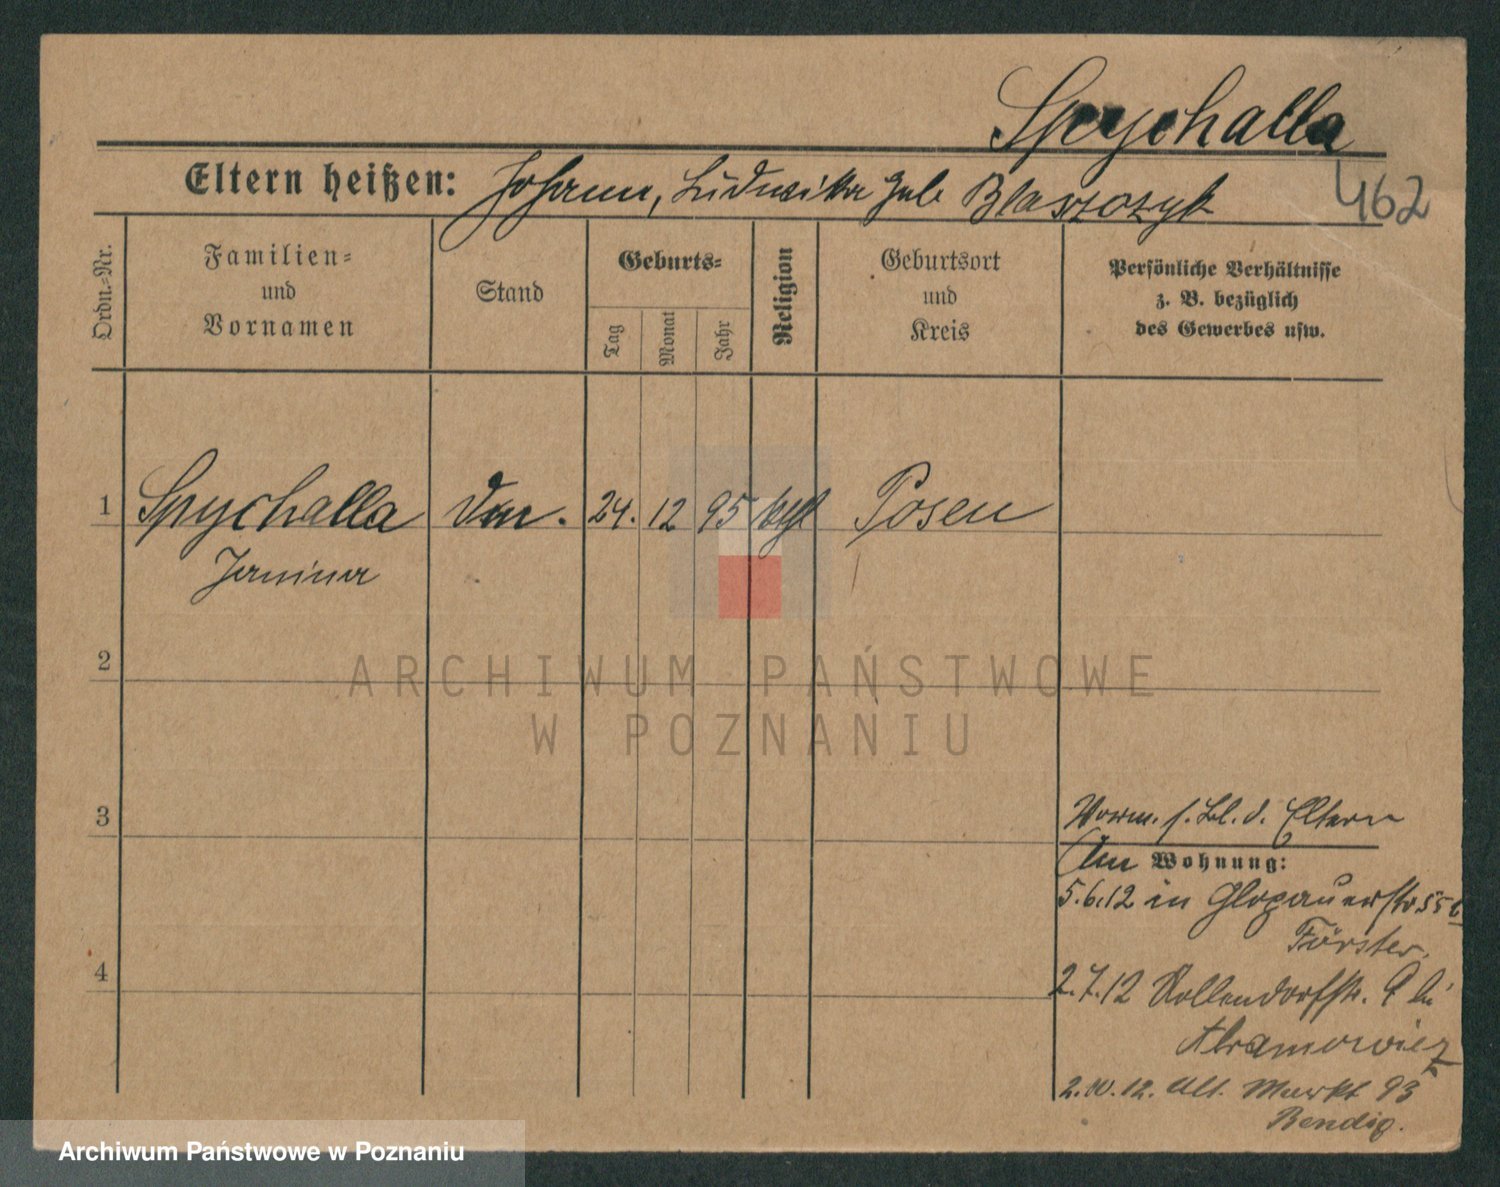 Spychalla
Eltern heißen: Johann, Ludwika geb Blaszczyk
462
Ordn.-Nr.
Familien-
und
Vornamen
Stand
Geburts-
Tag
Monat
Jahr
Religion
Geburtsort
und
Kreis
Persönliche Verhältnisse
z. B. bezüglich
des Gewerbes usw.
1 Spychalla 24. 12 95 Posen
Janina
2
ARCHIWUM PAŃSTWOWE
W POZNANIU
3
s. Bl. d. Eltern
Wohnung:
5.6.12 in Glogauerstr 55
Förster.
4
2.7.12 Nollendorfstr. 9 bei
Abramowicz
2.10.12. Alt. Markt 93
Bendig.
Archiwum Państwowe w Poznaniu